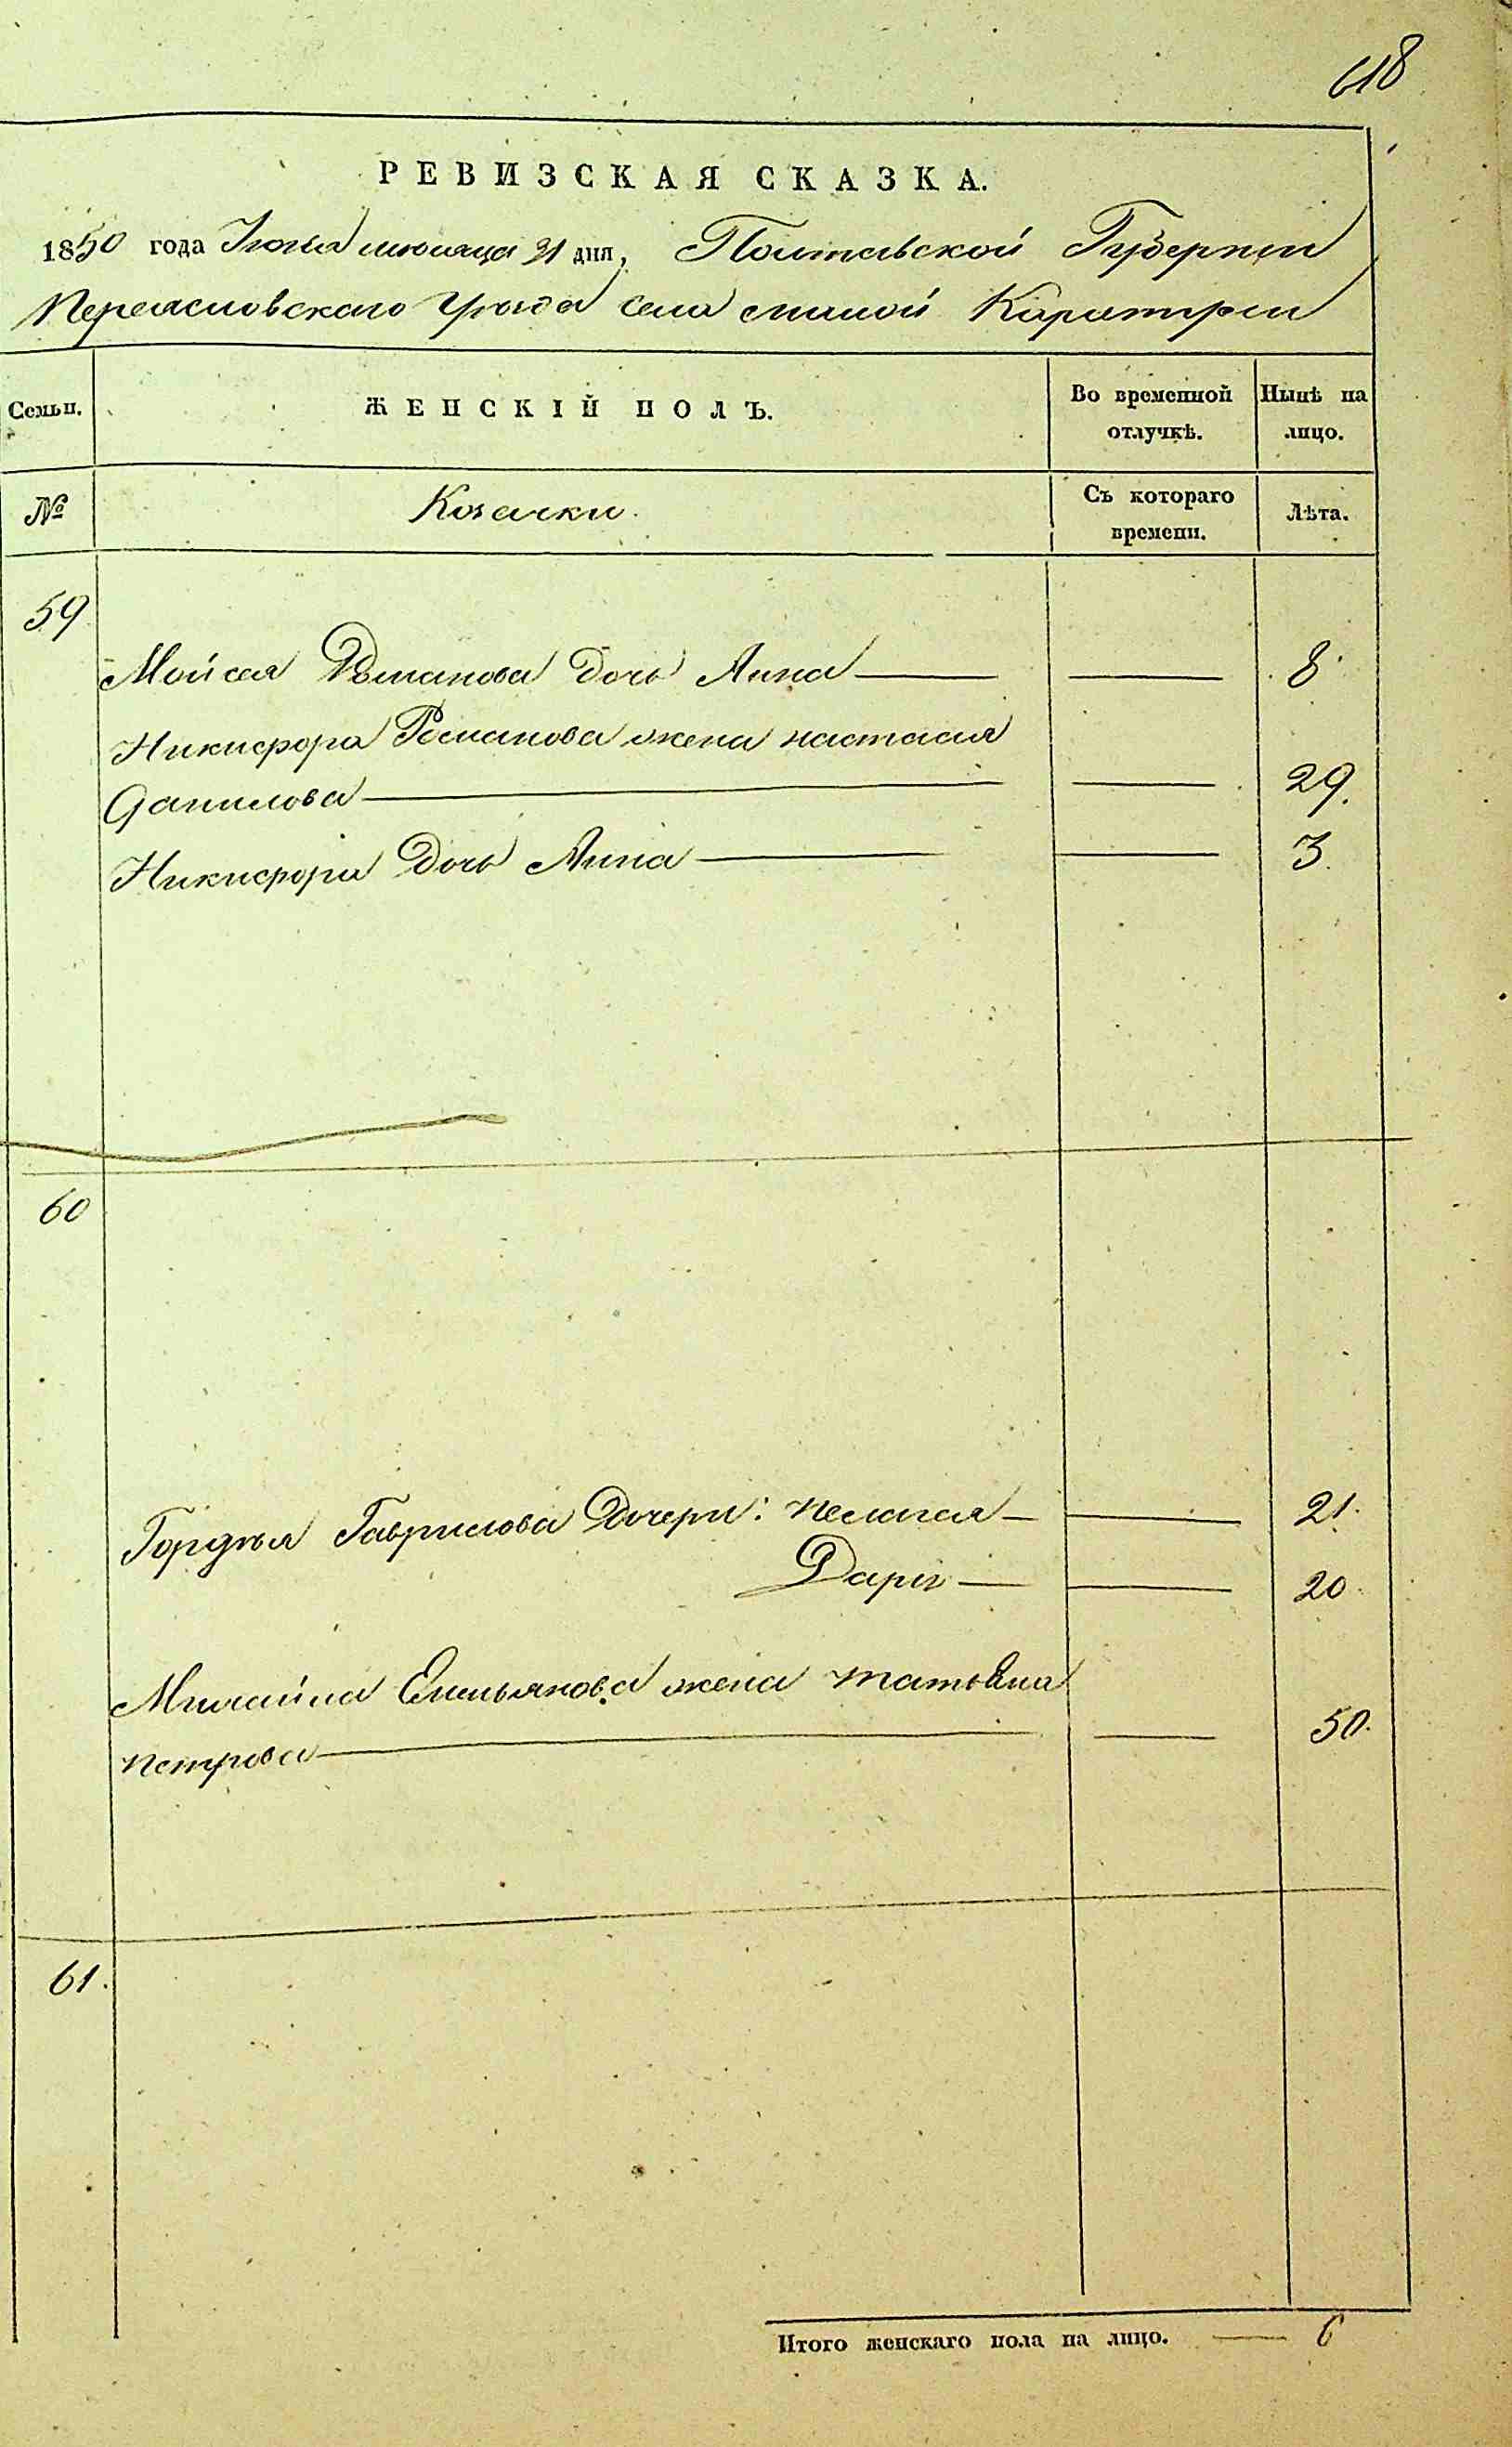 618
РЕВИЗСКАЯ СКАЗКА.
1850 года мѣсяца 31 дня, Полтавской Губернии
Переясловскаго Уѣзда села малой Каратули
Семьи. ЖЕНСКІЙ ПОЛЪ. Во временной отлучкѣ. Нынѣ на лицо.
№ Козачки. Съ котораго времени. Лѣта.
59
Мойсея Романова дочь Анна — — 8
Никифора Романова жена настасия
Данилова — — 29.
Никифора Дочь Анна — — 3.
60
Гордѣя Гаврилова Дочери: пелагея — — 21.
Дарія — — 20.
Михайла Емельянова жена татьяна
петрова — — 50.
61.
Итого женскаго пола на лицо. — 6